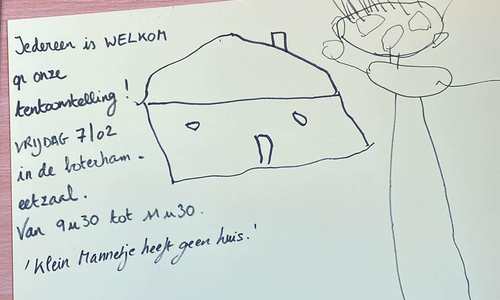 Iedereen is WELKOM
op onze
tentoonstelling!
VRIJDAG 7/02
in de boterham-
eetzaal.
Van 9u30 tot 11u30.
'Klein Mannetje heeft geen huis.'